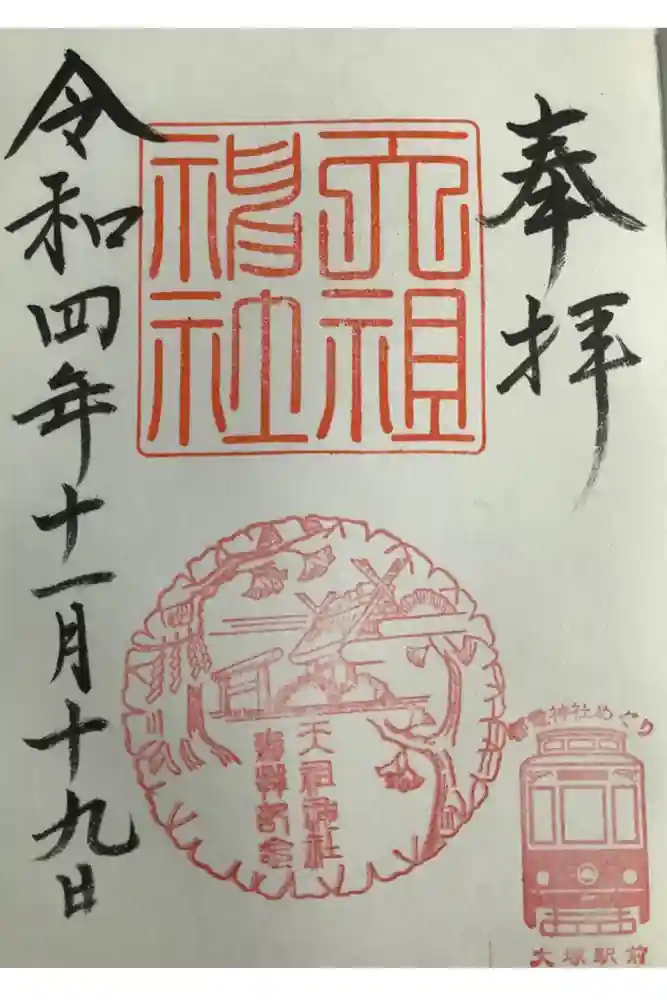 奉拝
天祖
神社
天祖神社
参拝記念
令和四年十一月十九日
都電神社めぐり
大塚駅前